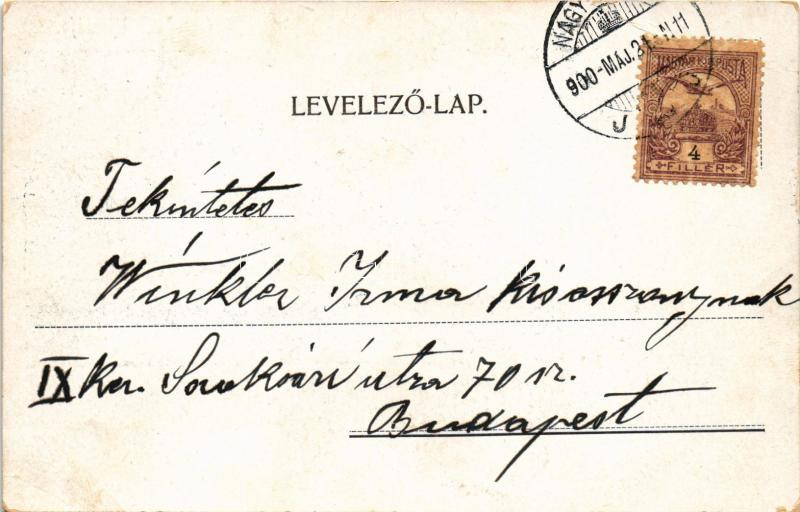 NAGY
900-MÁJ.31.-N.11
J
MAGYAR KIR. POSTA
4
FILLÉR
LEVELEZŐ-LAP.
Tekintetes
Winkler Irma kisasszonynak
IX ker. utza 70 sz.
Budapest